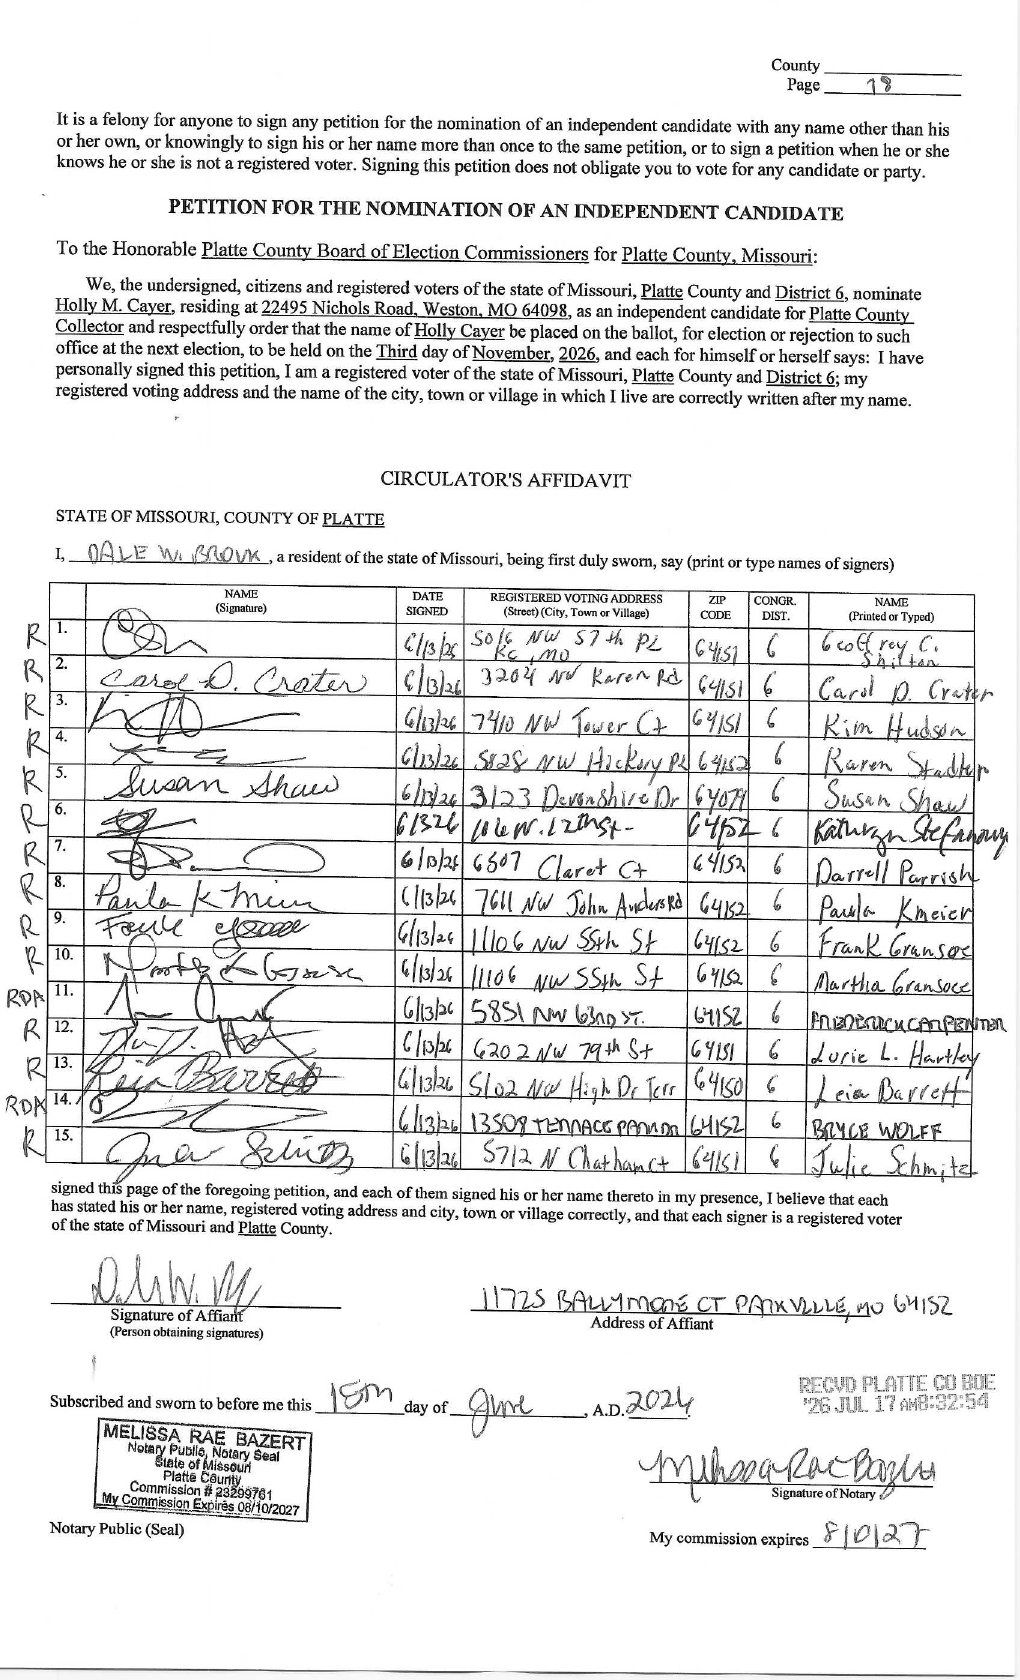 County
Page 78
It is a felony for anyone to sign any petition for the nomination of an independent candidate with any name other than his
or her own, or knowingly to sign his or her name more than once to the same petition, or to sign a petition when he or she
knows he or she is not a registered voter. Signing this petition does not obligate you to vote for any candidate or party.
PETITION FOR THE NOMINATION OF AN INDEPENDENT CANDIDATE
To the Honorable Platte County Board of Election Commissioners for Platte County, Missouri:
We, the undersigned, citizens and registered voters of the state of Missouri, Platte County and District 6, nominate
Holly M. Cayer, residing at 22495 Nichols Road, Weston, MO 64098, as an independent candidate for Platte County
Collector and respectfully order that the name of Holly Cayer be placed on the ballot, for election or rejection to such
office at the next election, to be held on the Third day of November, 2026, and each for himself or herself says: I have
personally signed this petition, I am a registered voter of the state of Missouri, Platte County and District 6; my
registered voting address and the name of the city, town or village in which I live are correctly written after my name.
CIRCULATOR'S AFFIDAVIT
STATE OF MISSOURI, COUNTY OF PLATTE
I, DALE W. BROUK, a resident of the state of Missouri, being first duly sworn, say (print or type names of signers)
NAME (Signature) DATE SIGNED REGISTERED VOTING ADDRESS (Street) (City, Town or Village) ZIP CODE CONGR. DIST. NAME (Printed or Typed)
R 1. 6/13/26 5016 NW 57th PL KC, MO 64151 6 Geoffrey C. Shilton
R 2. Carol D. Crater 6/13/26 3204 NW Karen Rd 64151 6 Carol D. Crater
R 3. 6/13/26 7410 NW Tower Ct 64151 6 Kim Hudson
R 4. 6/13/26 5828 NW Hickory PL 64152 6 Karen Stadter
R 5. Susan Shaw 6/13/26 3123 Devonshire Dr 64079 6 Susan Shaw
R 6. 61326 W. 12th St- 64152 6 Kathryn
R 7. 6/13/26 6507 Claret Ct 64152 6 Darrell Parrish
R 8. Paula K Meier 6/13/26 7611 NW John Anders Rd 64152 6 Paula Kmeier
R 9. 6/13/26 11106 NW 55th St 64152 6 Frank Gransoe
R 10. 6/13/26 11106 NW 55th St 64152 6 Martha Gransoee
RDA 11. 6/13/26 5851 NW 63RD ST. 64152 6 FREDERICK CARPENTER
R 12. 6/13/26 6202 NW 79th St 64151 6 Lorie L. Hartley
R 13. 6/13/26 5102 NW High Dr Terr 64150 6 Leia Barrett
RDA 14. 6/13/26 13509 64152 6 BRYCE WOLFF
R 15. 6/13/26 5712 N Chatham ct 64151 6 Julie Schmitz
signed this page of the foregoing petition, and each of them signed his or her name thereto in my presence, I believe that each
has stated his or her name, registered voting address and city, town or village correctly, and that each signer is a registered voter
of the state of Missouri and Platte County.
11725 BALLYMORE CT PARKVILLE, MO 64152
Signature of Affiant
(Person obtaining signatures)
Address of Affiant
RECVD PLATTE CO BOE
'26 JUL 17 AM8:32:54
Subscribed and sworn to before me this 15th day of June, A.D. 2026
MELISSA RAE BAZERT
Notary Public, Notary Seal
State of Missouri
Platte County
Commission # 23299761
My Commission Expires 08/10/2027
Melissa Rae Bazert
Signature of Notary
Notary Public (Seal)
My commission expires 8/10/27